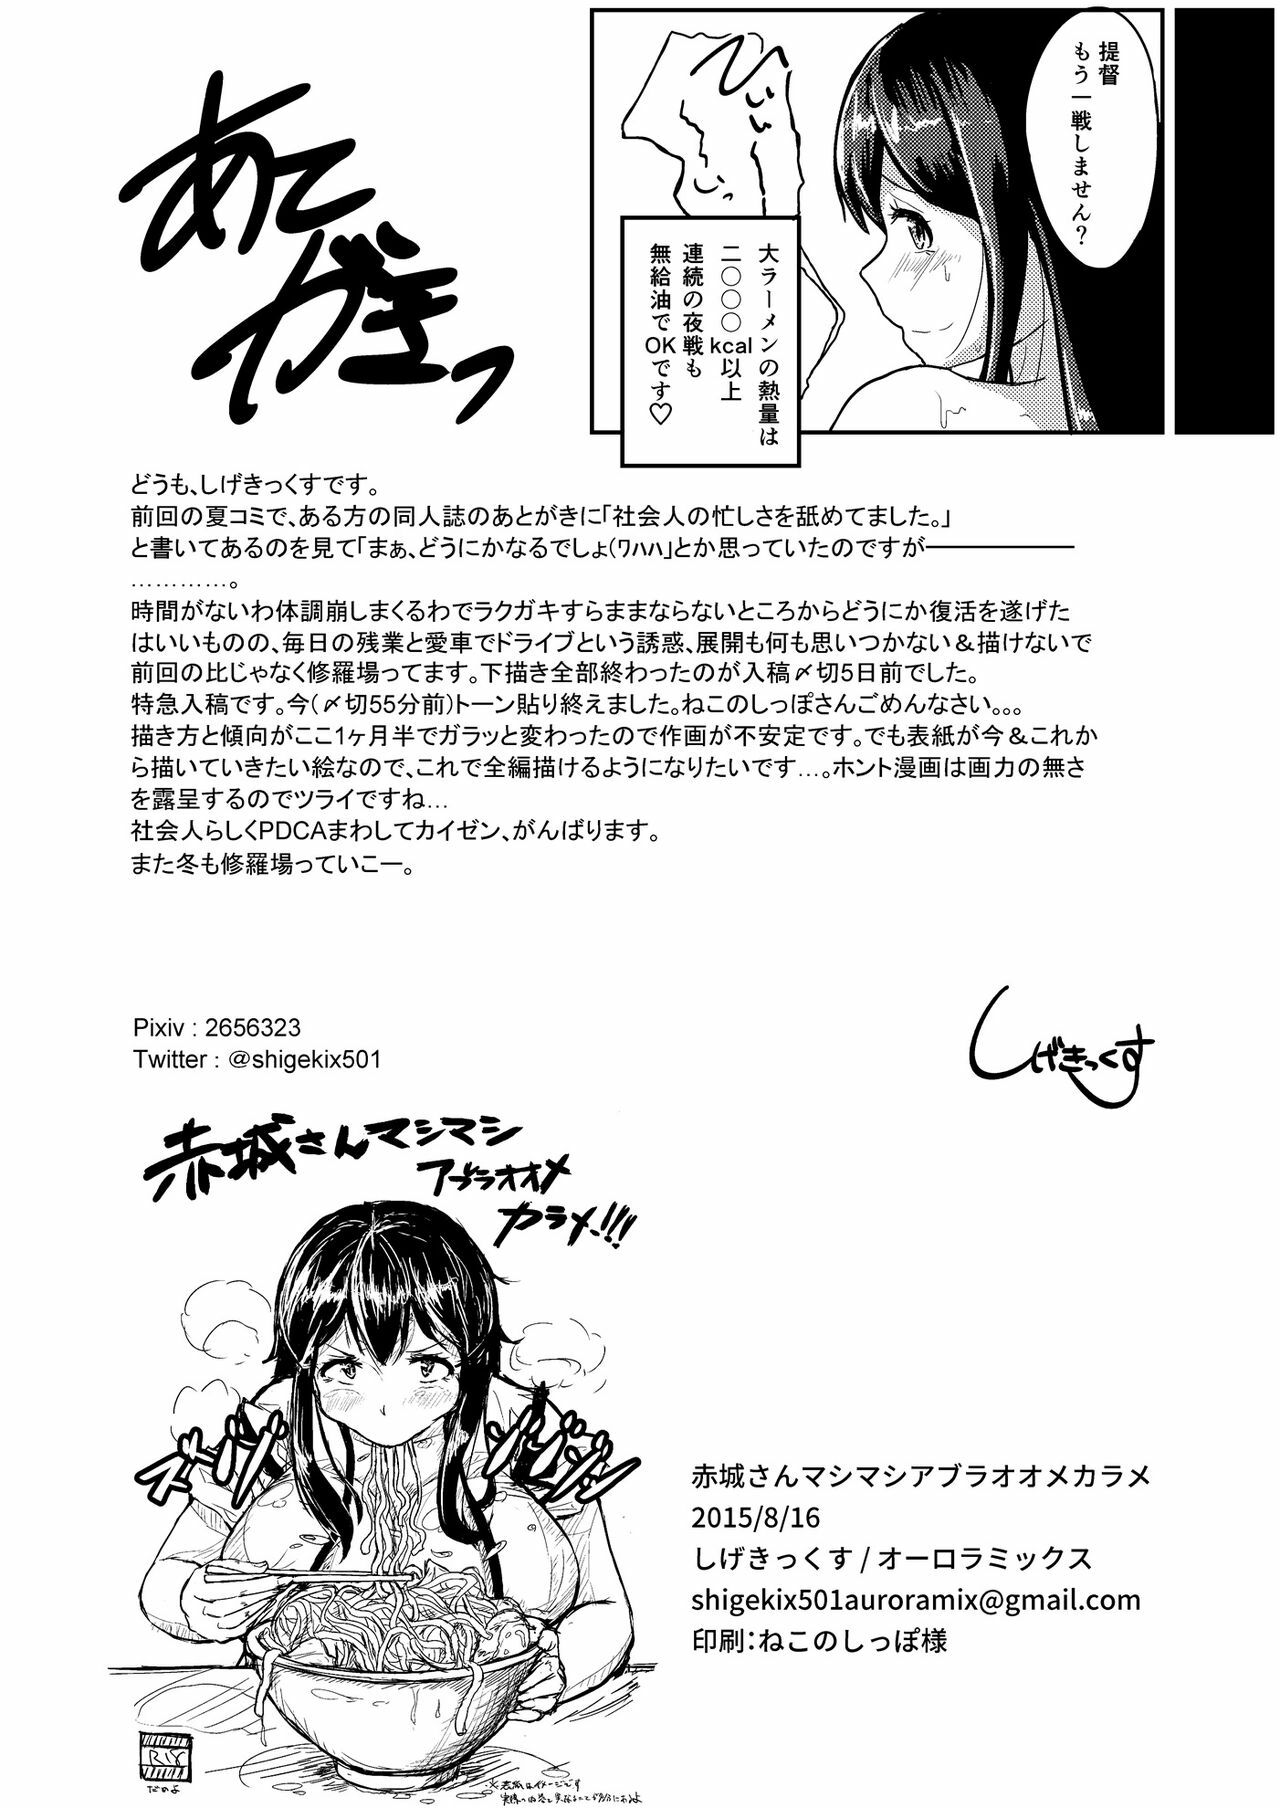 提督
もう一戦しません?
ひぃぃ
ぃぃ
大ラーメンの熱量は
二〇〇〇kcal以上
連続の夜戦も
無給油でOKです♡
あて
がきっ
どうも、しげきっくすです。
前回の夏コミで、ある方の同人誌のあとがきに「社会人の忙しさを舐めてました。」
と書いてあるのを見て「まぁ、どうにかなるでしょ(ﾜﾊﾊ」とか思っていたのですが――――――
…………。
時間がないわ体調崩しまくるわでラクガキすらままならないところからどうにか復活を遂げた
はいいものの、毎日の残業と愛車でドライブという誘惑、展開も何も思いつかない＆描けないで
前回の比じゃなく修羅場ってます。下描き全部終わったのが入稿〆切5日前でした。
特急入稿です。今(〆切55分前)トーン貼り終えました。ねこのしっぽさんごめんなさい。。。
描き方と傾向がここ1ヶ月半でガラッと変わったので作画が不安定です。でも表紙が今＆これか
ら描いていきたい絵なので、これで全編描けるようになりたいです…。ホント漫画は画力の無さ
を露呈するのでツライですね…
社会人らしくPDCAまわしてカイゼン、がんばります。
また冬も修羅場っていこー。
しげきっくす
Pixiv : 2656323
Twitter : @shigekix501
赤城さんマシマシ
アブラオオメ
カラメ-!!!
ズゾゾ
ゾゾゾゾ
赤城さんマシマシアブラオオメカラメ
2015/8/16
しげきっくす / オーロラミックス
shigekix501auroramix@gmail.com
印刷：ねこのしっぽ様
R18
だめよ
※表紙はイメージです